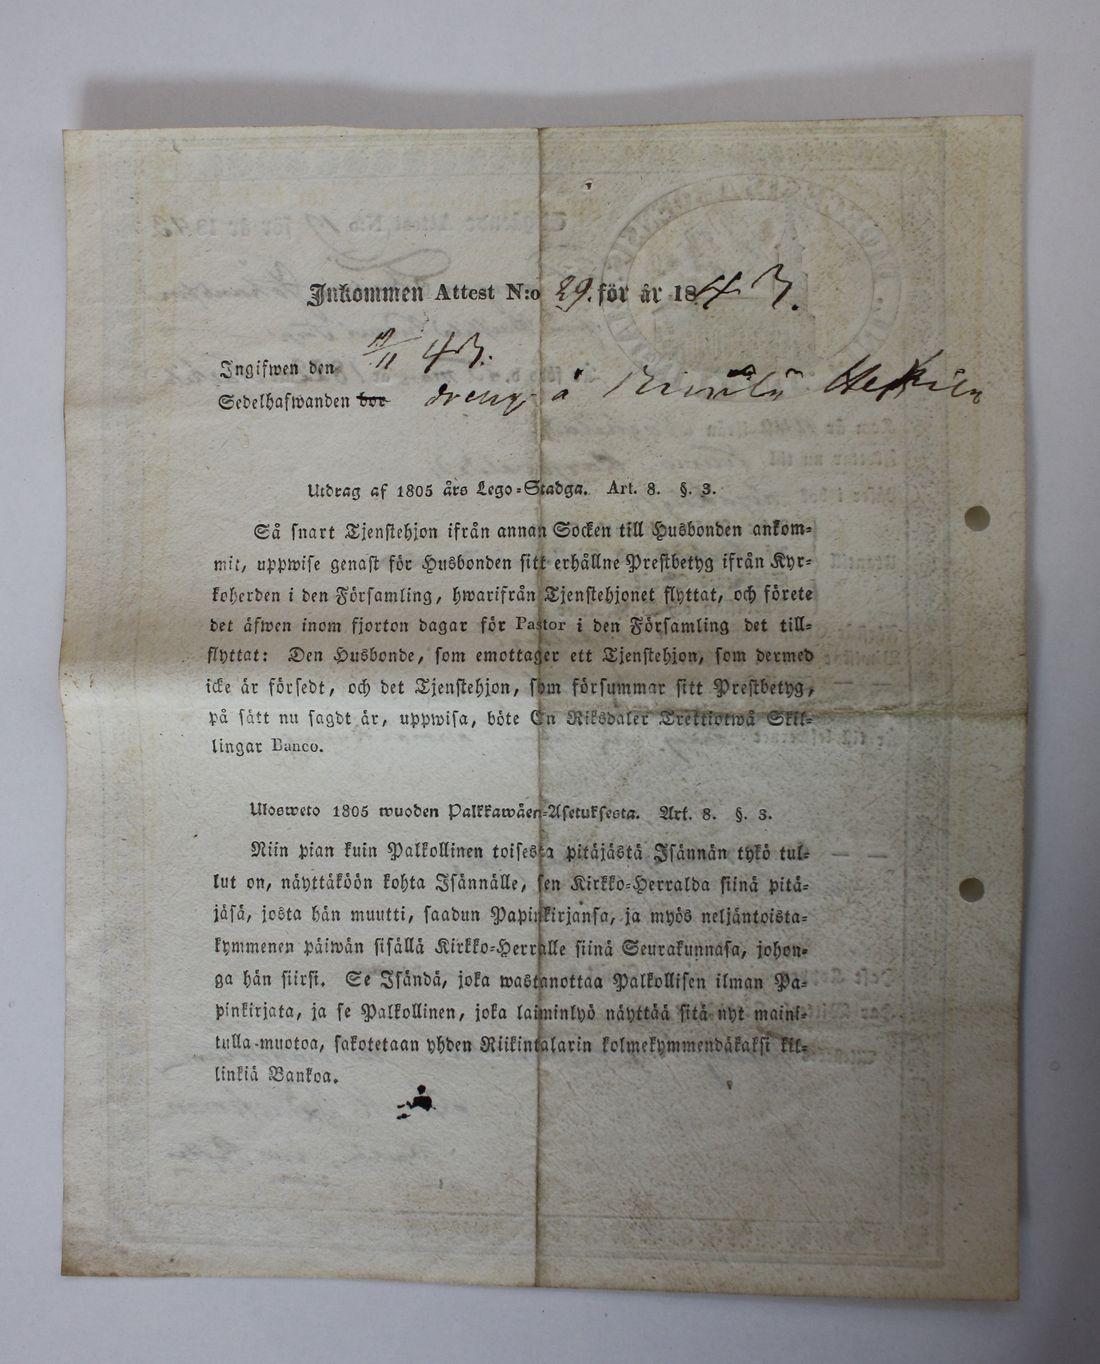 Inkommen Attest N:o 29. för år 1843.
Ingifwen den /11 43.
Sedelhafwanden bor dreng å Heikilä
Utdrag af 1805 års Lego-Stadga. Art. 8. §. 3.
Så snart Tjenstehjon ifrån annan Socken till Husbonden ankom-
mit, uppwise genast för Husbonden sitt erhållne Prestbetyg ifrån Kyr-
koherden i den Församling, hwarifrån Tjenstehjonet flyttat, och förete
det äfwen inom fjorton dagar för Pastor i den Församling det till-
flyttat: Den Husbonde, som emottager ett Tjenstehjon, som dermed
icke är försedt, och det Tjenstehjon, som försummar sitt Prestbetyg,
på sätt nu sagdt är, uppwisa, böte En Riksdaler Trettiotwå Skil-
lingar Banco.
Ulosweto 1805 wuoden Palkkawäen-Asetuksesta. Art. 8. §. 3.
Niin pian kuin Palkollinen toisesta pitäjästä Isännän tykö tul-
lut on, näyttäköön kohta Isännälle, sen Kirkko-Herralda siinä pitä-
jäsä, josta hän muutti, saadun Papinkirjansa, ja myös neljäntoista-
kymmenen päiwän sisällä Kirkko-Herralle siinä Seurakunnasa, johon-
ga hän siirsi. Se Isändä, joka wastanottaa Palkollisen ilman Pa-
pinkirjata, ja se Palkollinen, joka laiminlyö näyttää sitä nyt maini-
tulla muotoa, sakotetaan yhden Riikintalarin kolmekymmendäkaksi kil-
linkiä Bankoa.